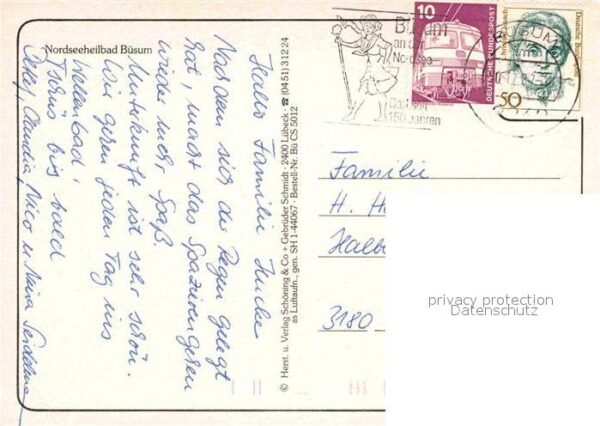 Nordseeheilbad Büsum
Hallo Familie
Nachdem sich der Regen gelegt
hat macht das Spazierengehen
wieder mehr Spaß.
Unterkunft ist sehr schön.
Wir gehen jeden Tag ins
Wellenbad!
Tschüs bis bald
Claudia, Nico u.
© Herst. u. Verlag Schöning & Co + Gebrüder Schmidt · 2400 Lübeck · ☎ (04 51) 3 12 24
as Luftaufn., gen. SH 1-44067 · Bestell-Nr. Bü CS 5012
Büsum
an der
Nordsee
150 Jahren
10
DEUTSCHE BUNDESPOST
50
Familie
H.
3180
privacy protection
Datenschutz